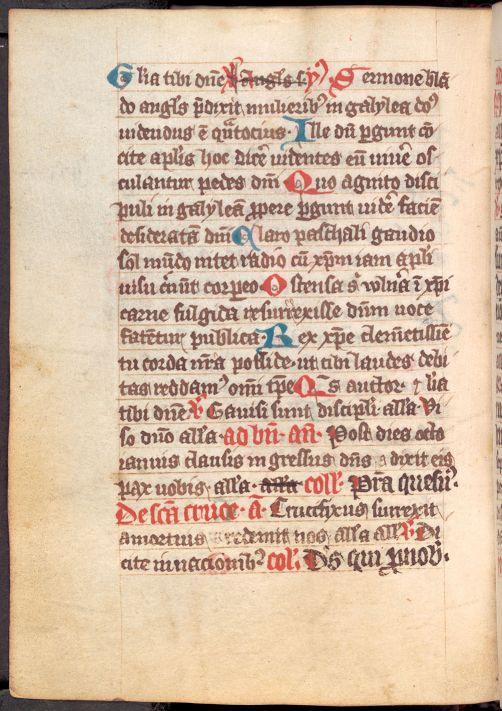 Glia tibi dn̄e angls s. Sermone blā
do angls p̄dixit mulierib⁹ in galylea do⁹
uidendus ē q̄ntocius· Ille dū p̱gunt cō
cite apl̄is hoc dicē uidentes eū uiuē os
culantur pedes dn̄i Quo agnito disci
puli in galyleā ꝓpere p̱gunt uidē faciē
desideratā dn̄i Claro paschali gaudio
sol mūdo nitet radio cū xp̄m iam apl̄i
uisu c̄nūt corpeo· Ostensa s̄ vlnꝰa ī xp̄i
carne fulgida resurrexisse dn̄m uoce
fatētur publica· Rex xp̄e clemētissīe
tu corda nr̄a posside· ut tibi laudes debi
tas reddam⁹ om̄i tp̄e Qs auctor· glia
tibi dn̄e ℣ Gauisi sunt discipl̄i all̄a Vi
so dn̄o all̄a· ad bn̄· an̄· Post dies octo
ianuis clausis ingressus dn̄s dixit eis
pax uobis· all̄a· all̄a coll̄· Pra quesu⁹·
De scā cruce· a· Crucifixus surrexit
a mortuis redemit nos all̄a all̄a ℣ Di
cite in nacionib⁹ col̄· Ds̄ qui p̱ nob̄·